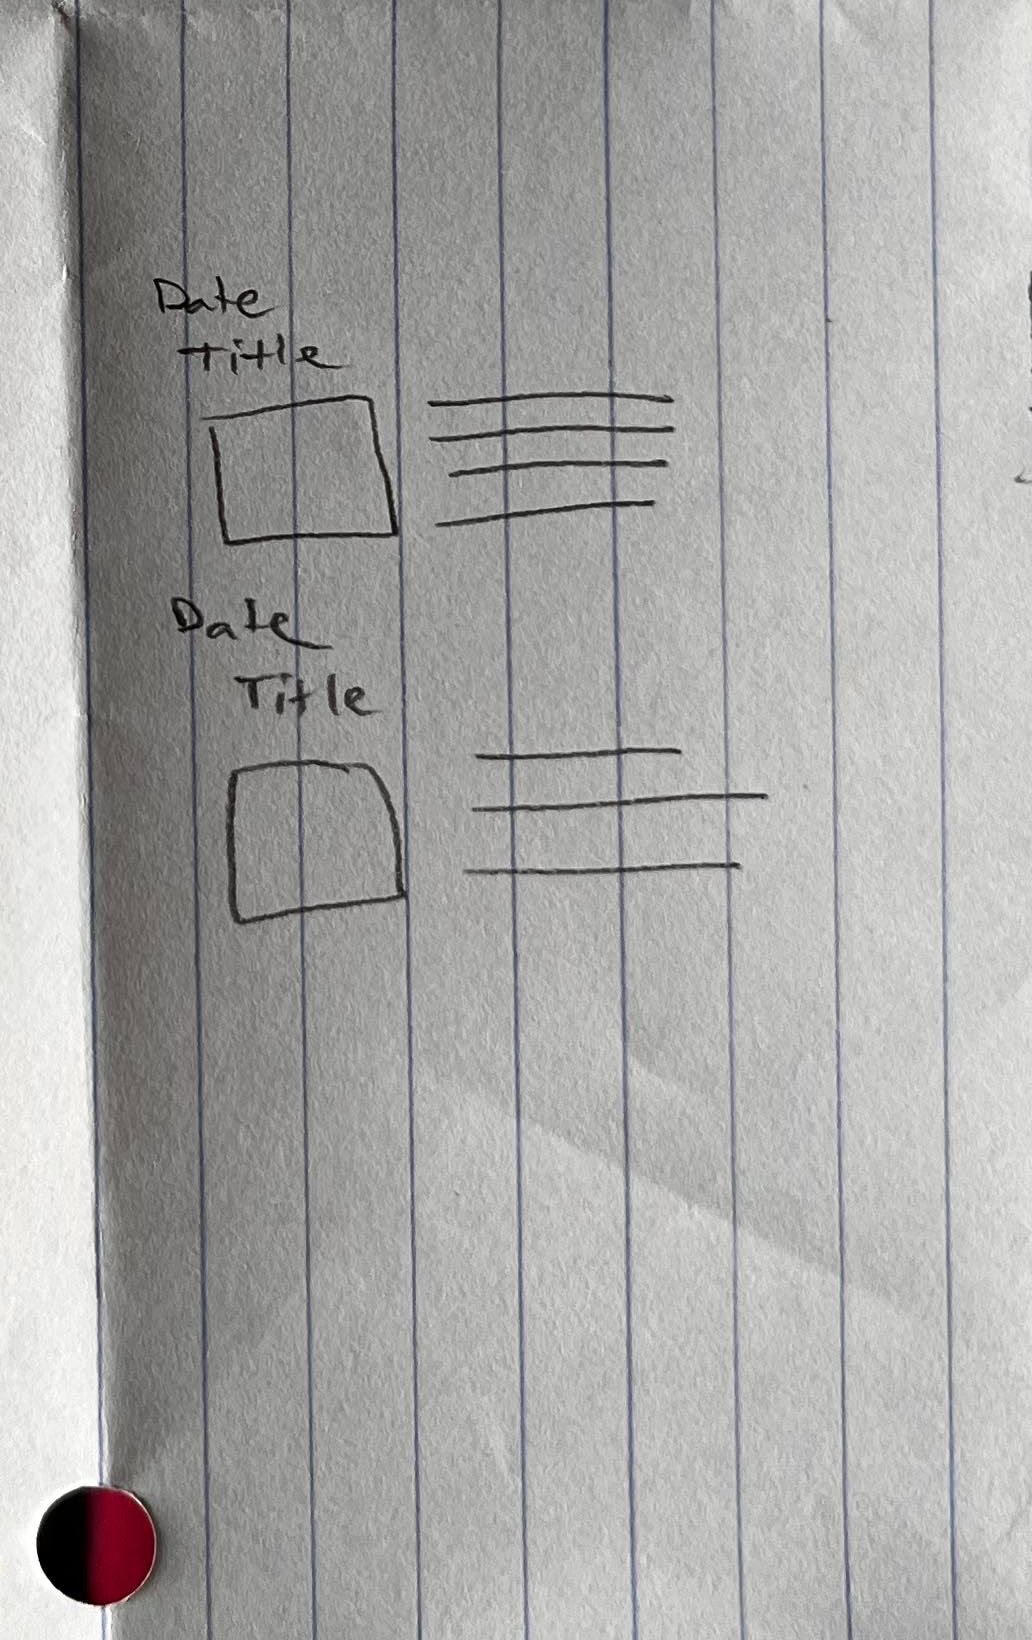 Date
Title
Date
Title